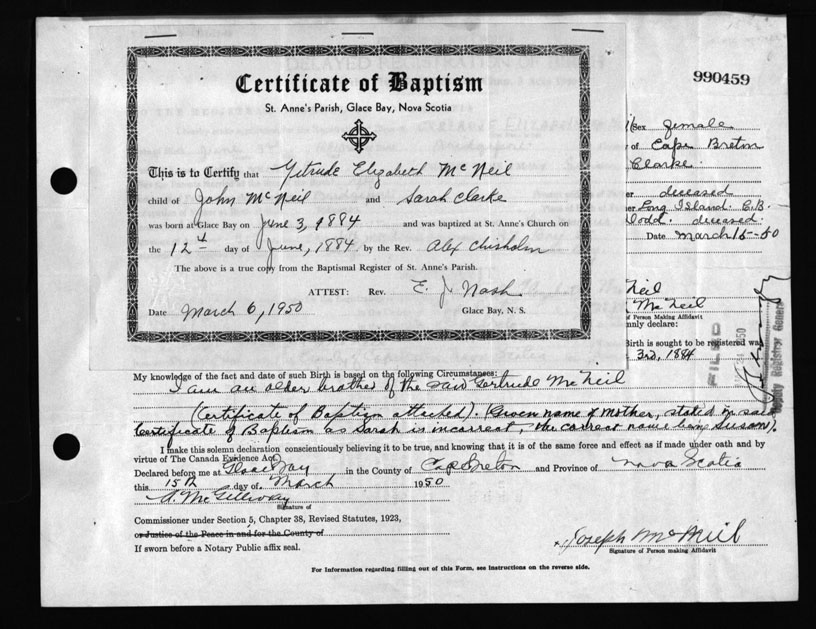 990459
Certificate of Baptism
St. Anne's Parish, Glace Bay, Nova Scotia
This is to Certify that Getrude Elizabeth McNeil
child of John McNeil and Sarah Clarke
was born at Glace Bay on June 3, 1884 and was baptized at St. Anne's Church on
the 12th day of June, 1884 by the Rev. Alex Chisholm
The above is a true copy from the Baptismal Register of St. Anne's Parish.
ATTEST: Rev. E. J. Nash
Date March 6, 1950 Glace Bay, N. S.
Sex female
of Cape Breton
Clarke.
deceased
Long Island. C.B.
Dodd. deceased.
Date March 15-50
Neil
McNeil
of Person Making Affidavit
nly declare:
Birth is sought to be registered was
3rd, 1884
FILED
Deputy Registrar General
My knowledge of the fact and date of such Birth is based on the following Circumstances:
I am an older brother of the said Gertrude McNeil
(Certificate of Baptism attached). (Given name of mother, stated in said
Certificate of Baptism as Sarah is incorrect, the correct name being Susan).
I make this solemn declaration conscientiously believing it to be true, and knowing that it is of the same force and effect as if made under oath and by
virtue of The Canada Evidence Act.
Declared before me at Glace Bay in the County of Cape Breton and Province of Nova Scotia
this 15th day of March 1950
A. McGillivray
Signature of
Commissioner under Section 5, Chapter 38, Revised Statutes, 1923,
or Justice of the Peace in and for the County of
If sworn before a Notary Public affix seal.
x Joseph McNeil
Signature of Person making Affidavit
For Information regarding filling out of this Form, see Instructions on the reverse side.